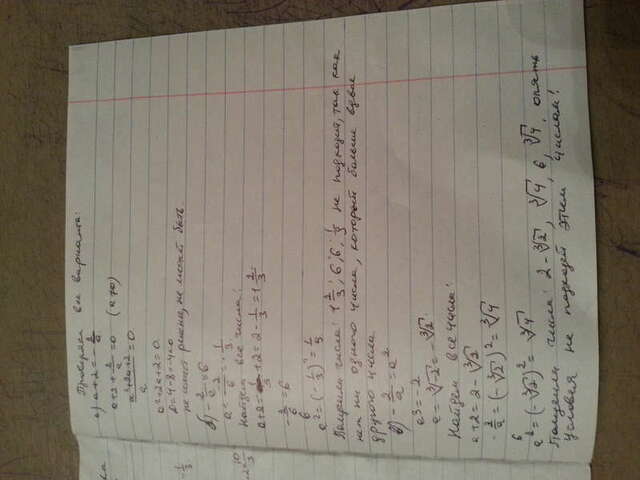 Проверяем все варианты:
а) a+2 = -2/a
a+2+2/a=0 (a≠0)
a²+2a+2=0
a
a²+2a+2=0
D=4-8=-4<0
не может быть
б) -2/a=6
a=-2/6=-1/3
Найдём все числа:
a+2=-1/3+2=2-1/3=1 2/3
-2/a=6
6
a²=(-1/3)²=1/9
Получили числа: 1 2/3; 6; 6; не подходит, так как
нет ни одного числа, который больше вдвое
другого числа
в) -2/a=a²
a³=-2
a=∛-2=-∛2
Найдём все числа:
a+2=2-∛2
-2/a=(-∛2)²=∛4
6
a²=(-∛2)²=∛4
Получили числа: 2-∛2, ∛4, 6, ∛4, опять
условия не подходят этим числам!